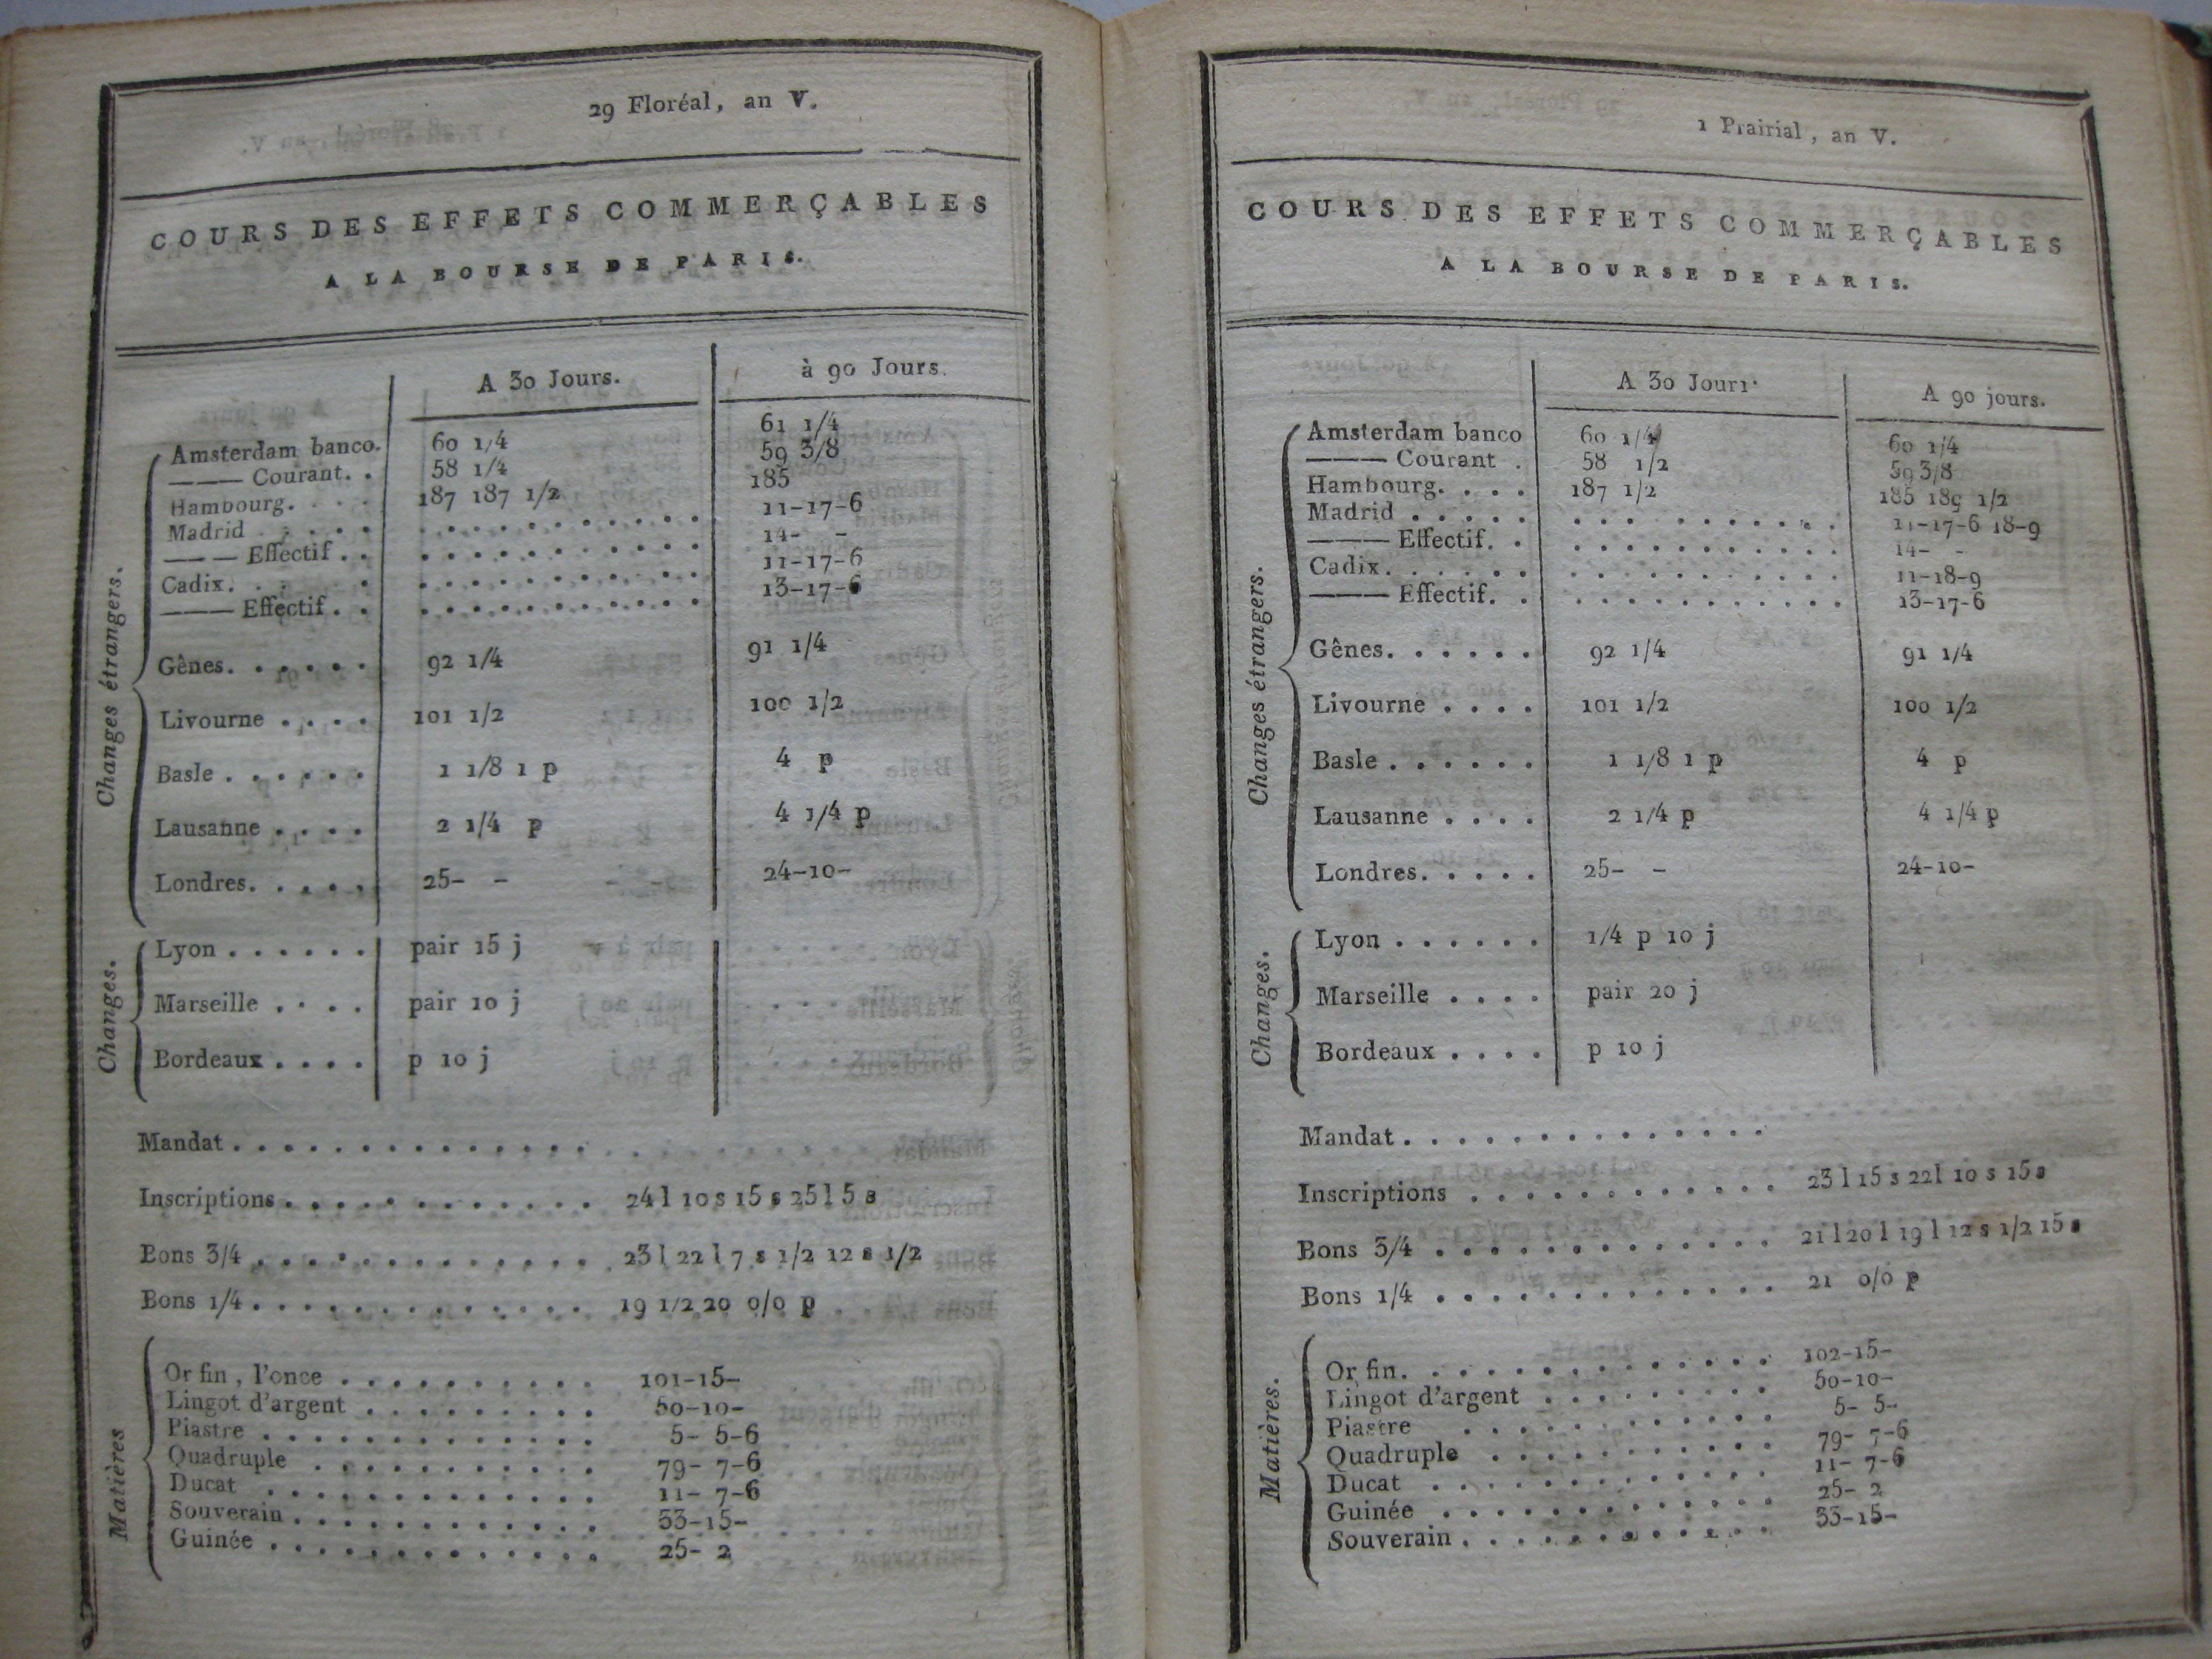 29 Floréal, an V.
COURS DES EFFETS COMMERÇABLES
A LA BOURSE DE PARIS.
A 30 Jours. à 90 Jours.
Changes étrangers.
Amsterdam banco. 60 1/4 61 1/4
——— Courant. . 58 1/4 59 3/8
Hambourg. . . . 187 187 1/2 185
Madrid . . . . . . . . . . . . . . . . 11-17-6
——— Effectif . . . . . . . . . . . . . 14- -
Cadix. . . . . . . . . . . . . . . . 11-17-6
——— Effectif . . . . . . . . . . . . . 13-17-6
Gênes. . . . . . 92 1/4 91 1/4
Livourne . . . . 101 1/2 100 1/2
Basle . . . . . . 1 1/8 1 p 4 p
Lausanne . . . . 2 1/4 p 4 1/4 p
Londres. . . . . 25- - 24-10-
Changes.
Lyon . . . . . . pair 15 j
Marseille . . . . pair 10 j
Bordeaux . . . . p 10 j
Mandat . . . . . . . . . . . . . . .
Inscriptions . . . . . . . . . . . . 24 l 10 s 15 s 25 l 5 s
Bons 3/4 . . . . . . . . . . . . . 23 l 22 l 7 s 1/2 12 s 1/2
Bons 1/4 . . . . . . . . . . . . . 19 1/2 20 0/0 p
Matières
Or fin, l'once . . . . . . . . . . 101-15-
Lingot d'argent . . . . . . . . . 50-10-
Piastre . . . . . . . . . . . . . 5- 5-6
Quadruple . . . . . . . . . . . 79- 7-6
Ducat . . . . . . . . . . . . . 11- 7-6
Souverain . . . . . . . . . . . . 33-15-
Guinée . . . . . . . . . . . . . 25- 2
1 Prairial, an V.
COURS DES EFFETS COMMERÇABLES
A LA BOURSE DE PARIS.
A 30 Jours. A 90 jours.
Changes étrangers.
Amsterdam banco 60 1/4 60 1/4
——— Courant . 58 1/2 59 3/8
Hambourg. . . . 187 1/2 185 189 1/2
Madrid . . . . . . . . . . . . . . . . 11-17-6 18-9
——— Effectif. . . . . . . . . . . . . 14- -
Cadix. . . . . . . . . . . . . . . . 11-18-9
——— Effectif. . . . . . . . . . . . . 13-17-6
Gênes. . . . . . 92 1/4 91 1/4
Livourne . . . . 101 1/2 100 1/2
Basle . . . . . . 1 1/8 1 p 4 p
Lausanne . . . . 2 1/4 p 4 1/4 p
Londres. . . . . 25- - 24-10-
Changes.
Lyon . . . . . . 1/4 p 10 j
Marseille . . . . pair 20 j
Bordeaux . . . . p 10 j
Mandat . . . . . . . . . . . . . . .
Inscriptions . . . . . . . . . . . . 23 l 15 s 22 l 10 s 15 s
Bons 3/4 . . . . . . . . . . . . . 21 l 20 l 19 l 12 s 1/2 15 s
Bons 1/4 . . . . . . . . . . . . . 21 0/0 p
Matières.
Or fin. . . . . . . . . . . . . . 102-15-
Lingot d'argent . . . . . . . . . 50-10-
Piastre . . . . . . . . . . . . 5- 5-
Quadruple . . . . . . . . . . . 79- 7-6
Ducat . . . . . . . . . . . . . 11- 7-6
Guinée . . . . . . . . . . . . . 25- 2
Souverain . . . . . . . . . . . . 33-15-